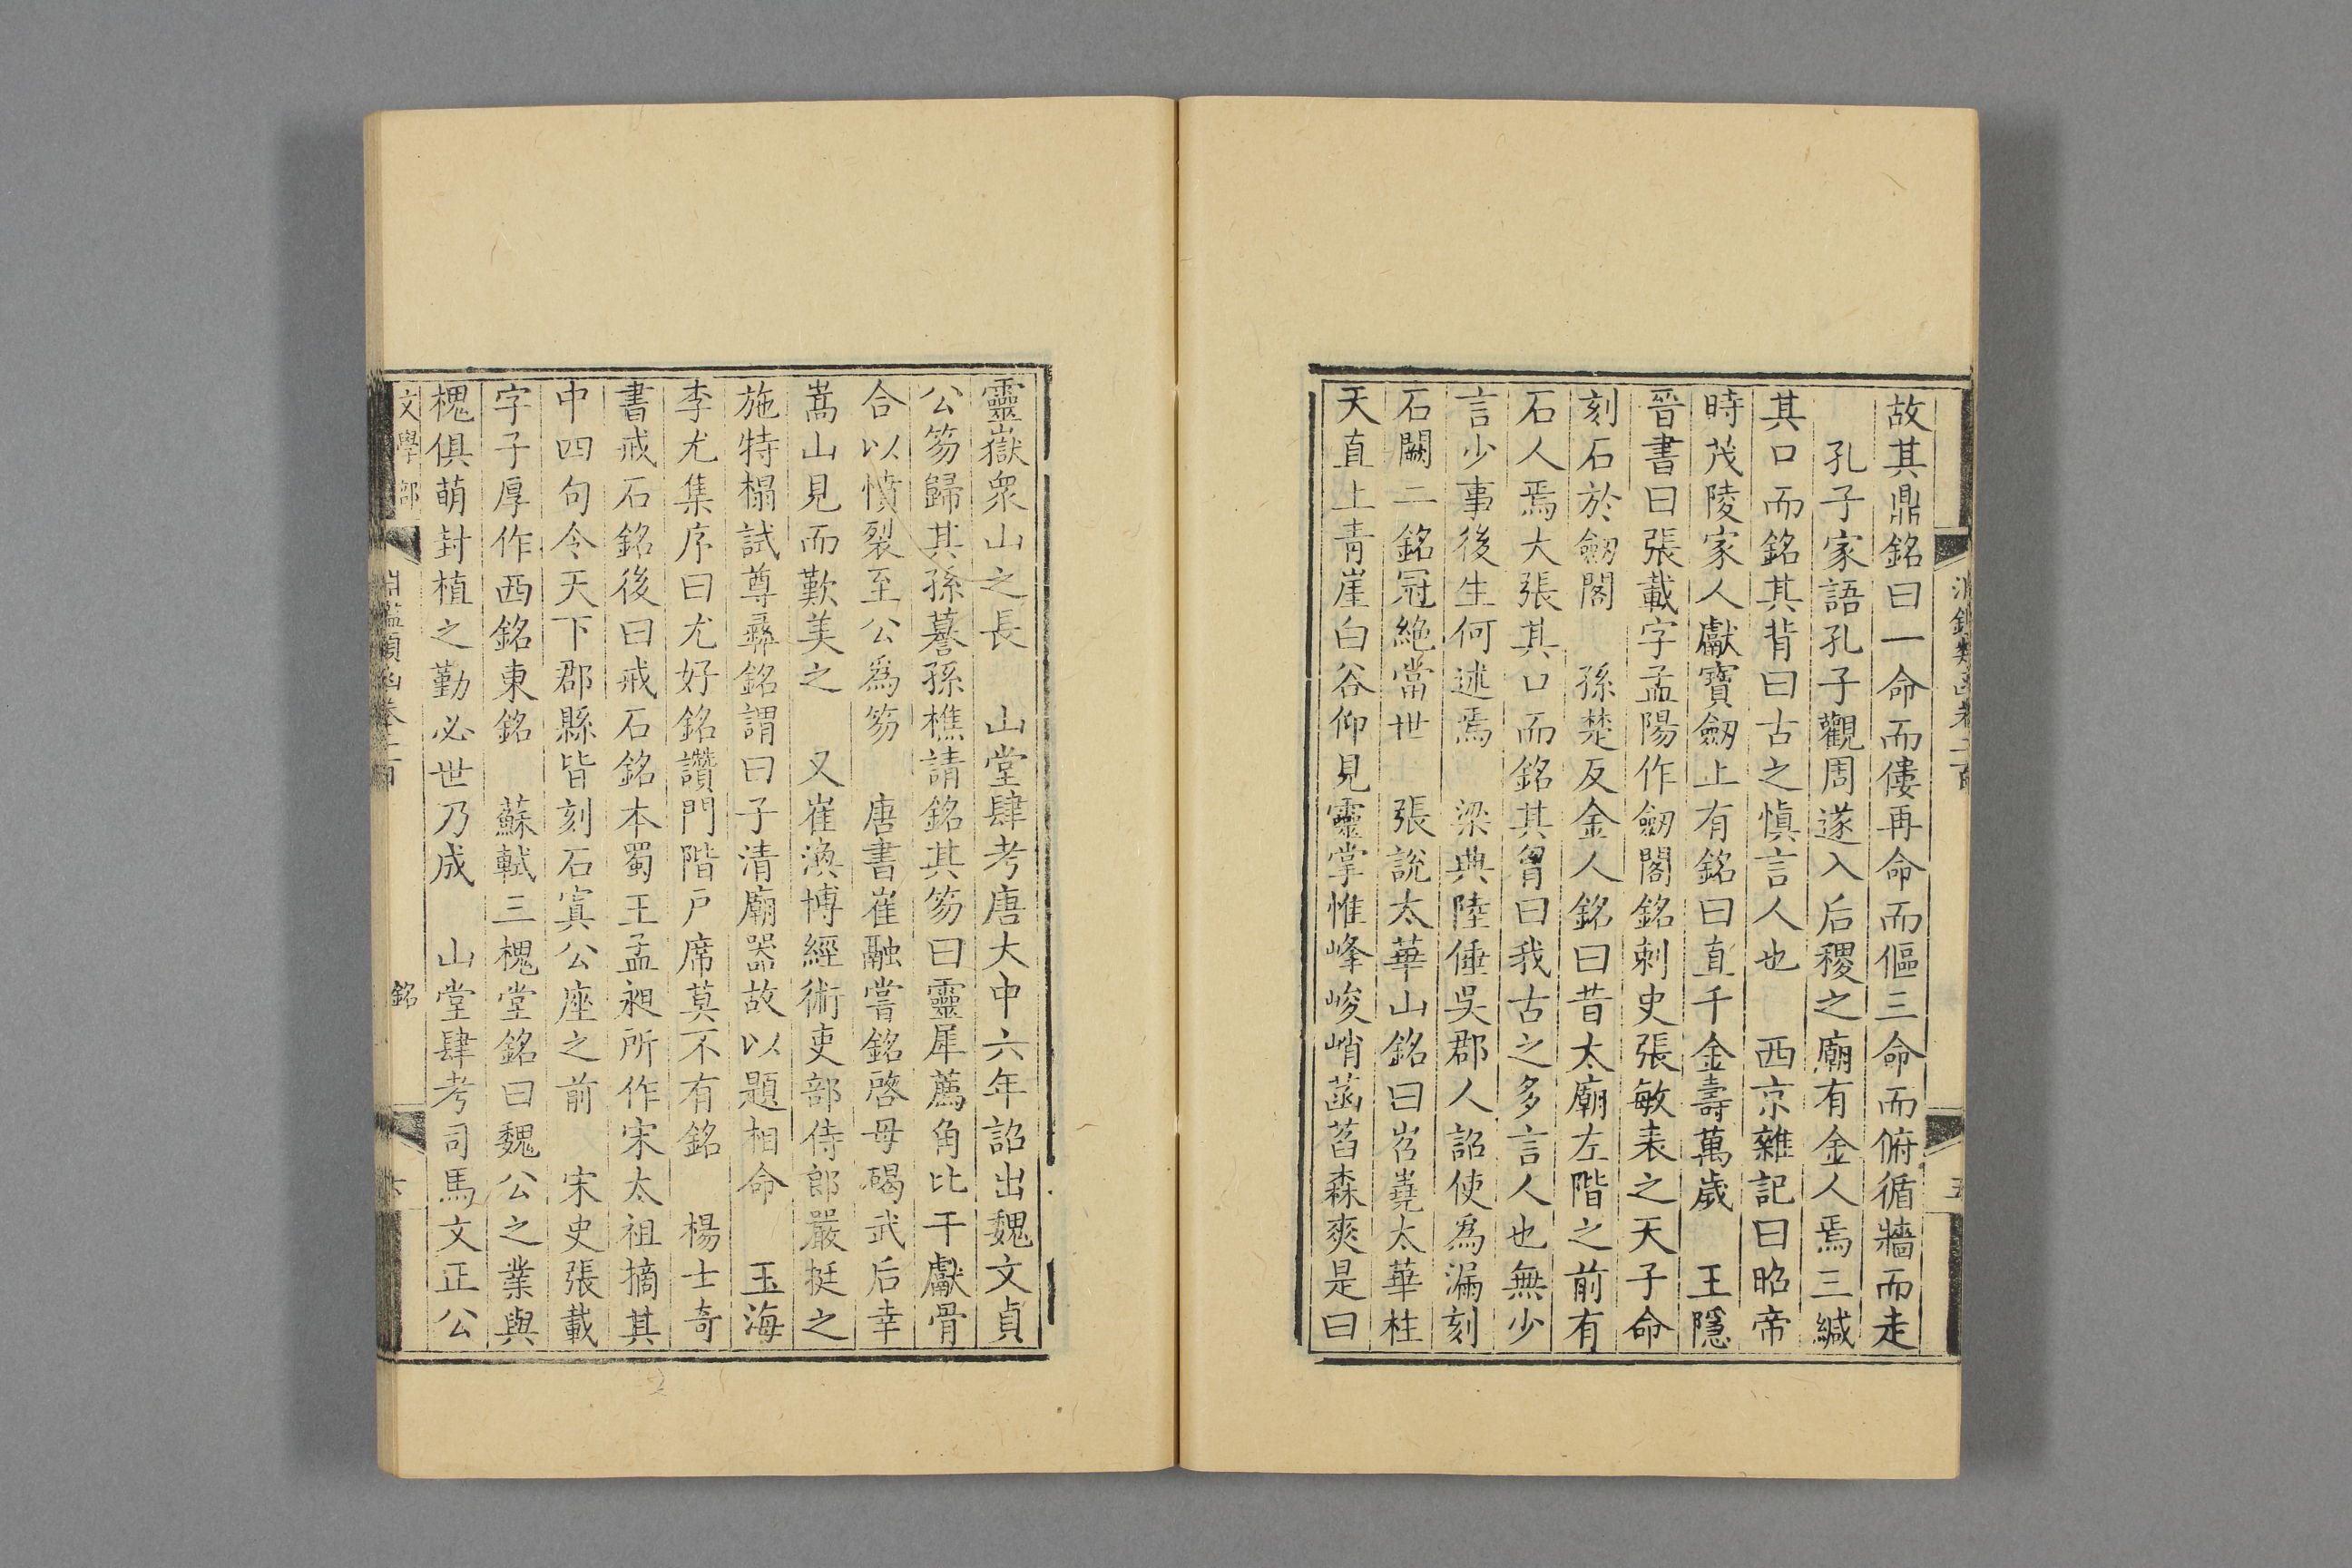 故其鼎銘曰一命而僂再命而傴三命而俯循牆而走
孔子家語孔子觀周遂入后稷之廟有金人焉三緘
其口而銘其背曰古之慎言人也　西京雜記曰昭帝
時茂陵家人獻寶劒上有銘曰直千金壽萬歲　王隱
晉書曰張載字孟陽作劒閣銘刺史張敏表之天子命
刻石於劒閣　孫楚反金人銘曰昔太廟左階之前有
石人焉大張其口而銘其胷曰我古之多言人也無少
言少事後生何述焉　梁典陸倕吳郡人詔使爲漏刻
石闕二銘冠絶當世　張說太華山銘曰岧嶤太華柱
天直上青崖白谷仰見靈掌惟峰峻峭菡萏森爽是曰
靈嶽衆山之長　山堂肆考唐大中六年詔出魏文貞
公笏歸其孫謩孫樵請銘其笏曰靈犀薦角比干獻骨
合以憤裂至公爲笏　唐書崔融嘗銘啓母碣武后幸
嵩山見而歎美之　又崔渙博經術吏部侍郎嚴挺之
施特榻試尊彝銘謂曰子清廟器故以題相命　玉海
李尤集序曰尤好銘讚門階戶席莫不有銘　楊士奇
書戒石銘後曰戒石銘本蜀王孟昶所作宋太祖摘其
中四句令天下郡縣皆刻石寘公座之前　宋史張載
字子厚作西銘東銘　蘇軾三槐堂銘曰魏公之業與
槐俱萌封植之勤必世乃成　山堂肆考司馬文正公
文學部　銘